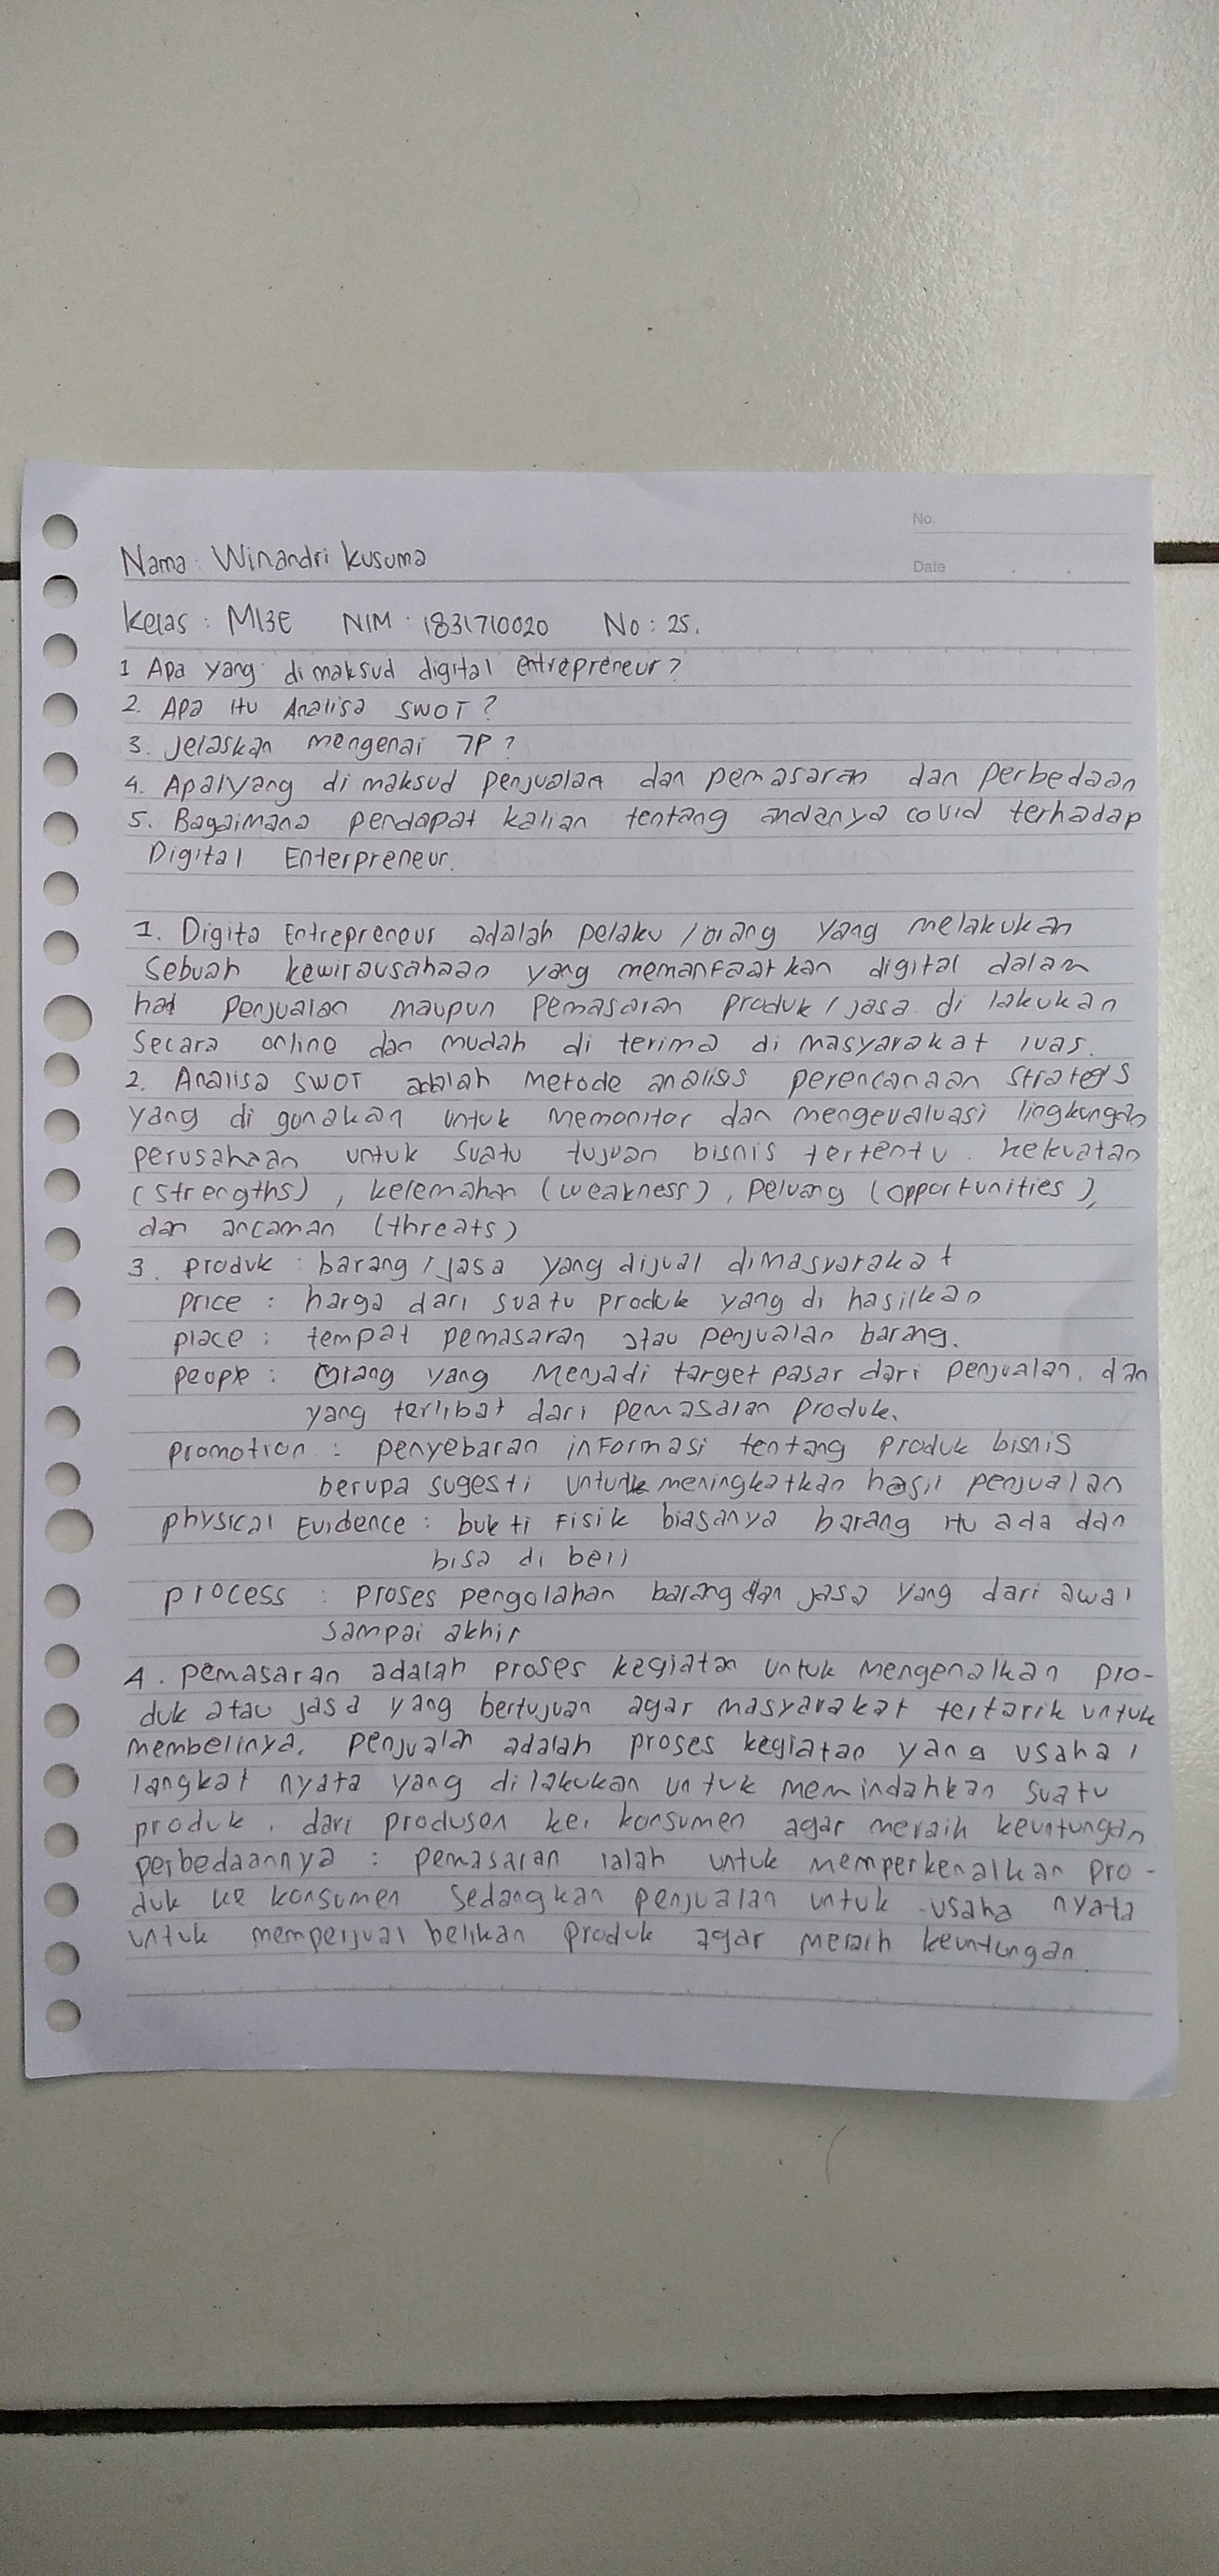 No.
Date
Nama : Winandri Kusuma
Kelas : MI3E NIM : 1831710020 No : 25.
1 Apa yang di maksud digital entrepreneur?
2. Apa itu Analisa SWOT ?
3. Jelaskan mengenai 7P ?
4. Apa yang di maksud penjualan dan pemasaran dan perbedaan
5. Bagaimana pendapat kalian tentang andanya covid terhadap
Digital Enterpreneur.
1. Digita Entrepreneur adalah pelaku / orang yang melakukan
Sebuah kewirausahaan yang memanfaatkan digital dalam
hal penjualan maupun pemasaran produk / jasa di lakukan
Secara online dan mudah di terima di masyarakat luas.
2. Analisa SWOT adalah metode analisis perencanaan strategis
yang di gunakan untuk memonitor dan mengevaluasi lingkungan
perusahaan untuk suatu tujuan bisnis tertentu. kekuatan
(strengths), kelemahan (weakness), peluang (opportunities),
dan ancaman (threats)
3. produk : barang / jasa yang dijual dimasyarakat
price : harga dari suatu produk yang di hasilkan
place : tempat pemasaran atau penjualan barang.
people : Orang yang Menjadi target pasar dari penjualan. dan
yang terlibat dari pemasaran produk.
promotion : penyebaran informasi tentang produk bisnis
berupa sugesti untuk meningkatkan hasil penjualan
physical Evidence : bukti fisik biasanya barang itu ada dan
bisa di beli
process : proses pengolahan barang dan jasa yang dari awal
sampai akhir
4. pemasaran adalah proses kegiatan untuk mengenalkan pro-
duk atau jasa yang bertujuan agar masyarakat tertarik untuk
membelinya. penjualan adalah proses kegiatan yang usaha /
langkat nyata yang dilakukan untuk memindahkan suatu
produk, dari produsen ke konsumen agar meraih keuntungan
perbedaannya : pemasaran ialah untuk memperkenalkan pro-
duk ke konsumen sedangkan penjualan untuk usaha nyata
untuk memperjual belikan produk agar meraih keuntungan.